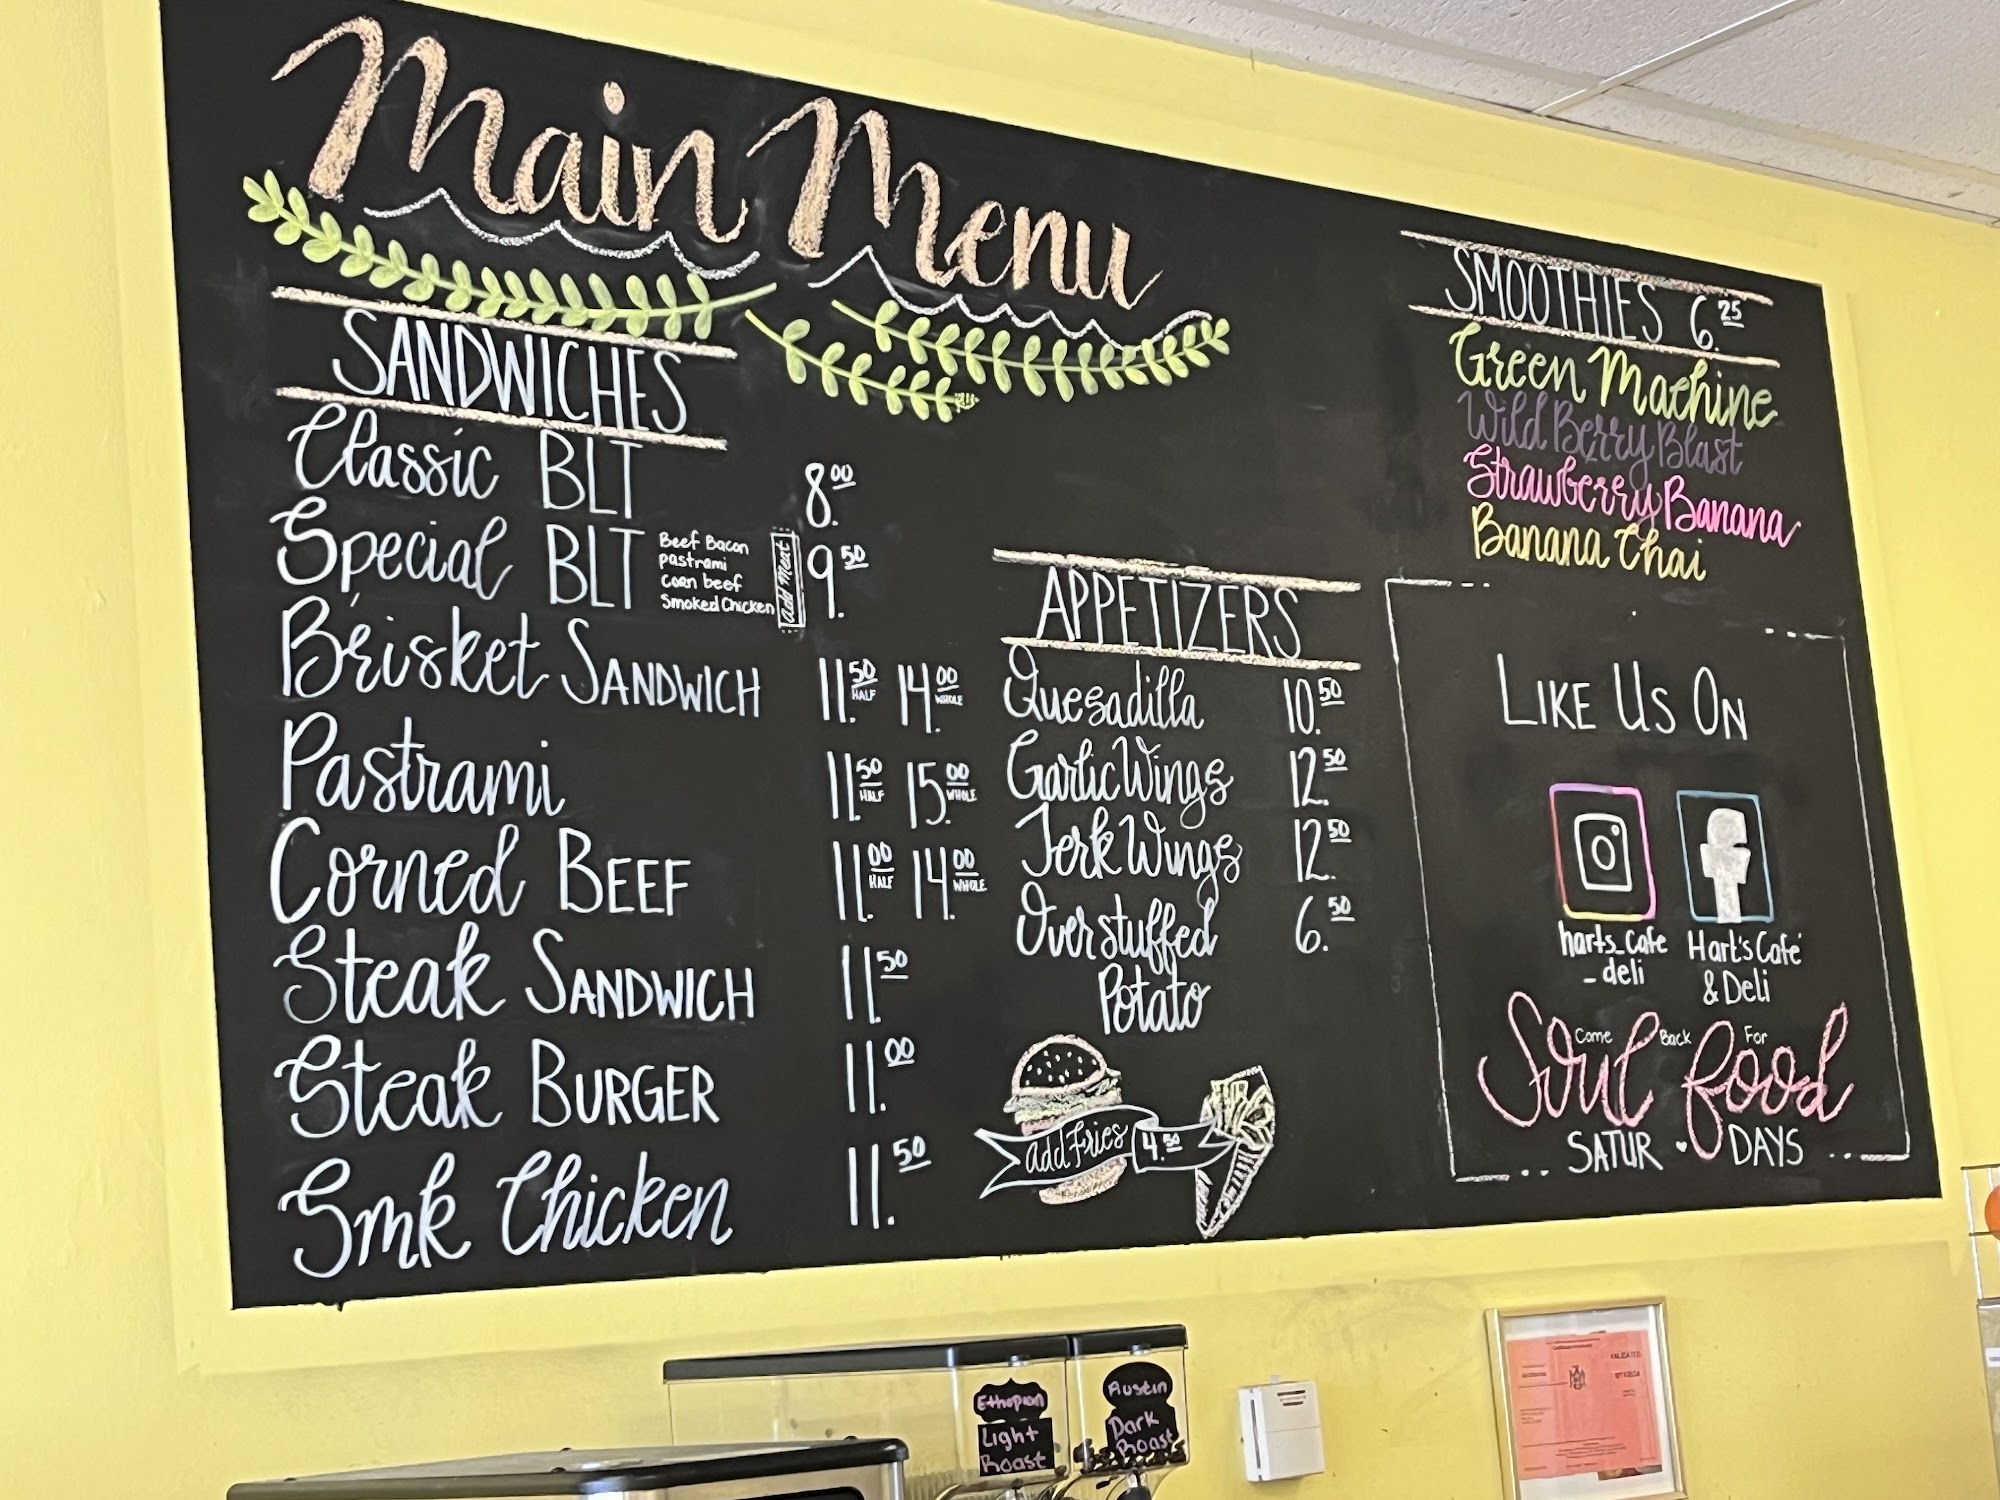 Main Menu
SANDWICHES
Classic BLT 8.00
Special BLT Beef Bacon Add Meat 9.50
pastrami
corn beef
Smoked Chicken
Brisket SANDWICH 11.50 HALF 14.00 WHOLE
Pastrami 11.50 HALF 15.00 WHOLE
Corned BEEF 11.00 HALF 14.00 WHOLE
Steak SANDWICH 11.50
Steak BURGER 11.00
Smk Chicken 11.50
APPETIZERS
Quesadilla 10.50
Garlic Wings 12.50
Jerk Wings 12.50
Overstuffed 6.50
Potato
add Fries 4.50
SMOOTHIES 6.25
Green Machine
Wild Berry Blast
Strawberry Banana
Banana Chai
LIKE US ON
harts_cafe
_deli
Hart's Café
& Deli
Come Back For
Soul food
SATUR DAYS
Ethopian
Light
Roast
Austin
Dark
Roast